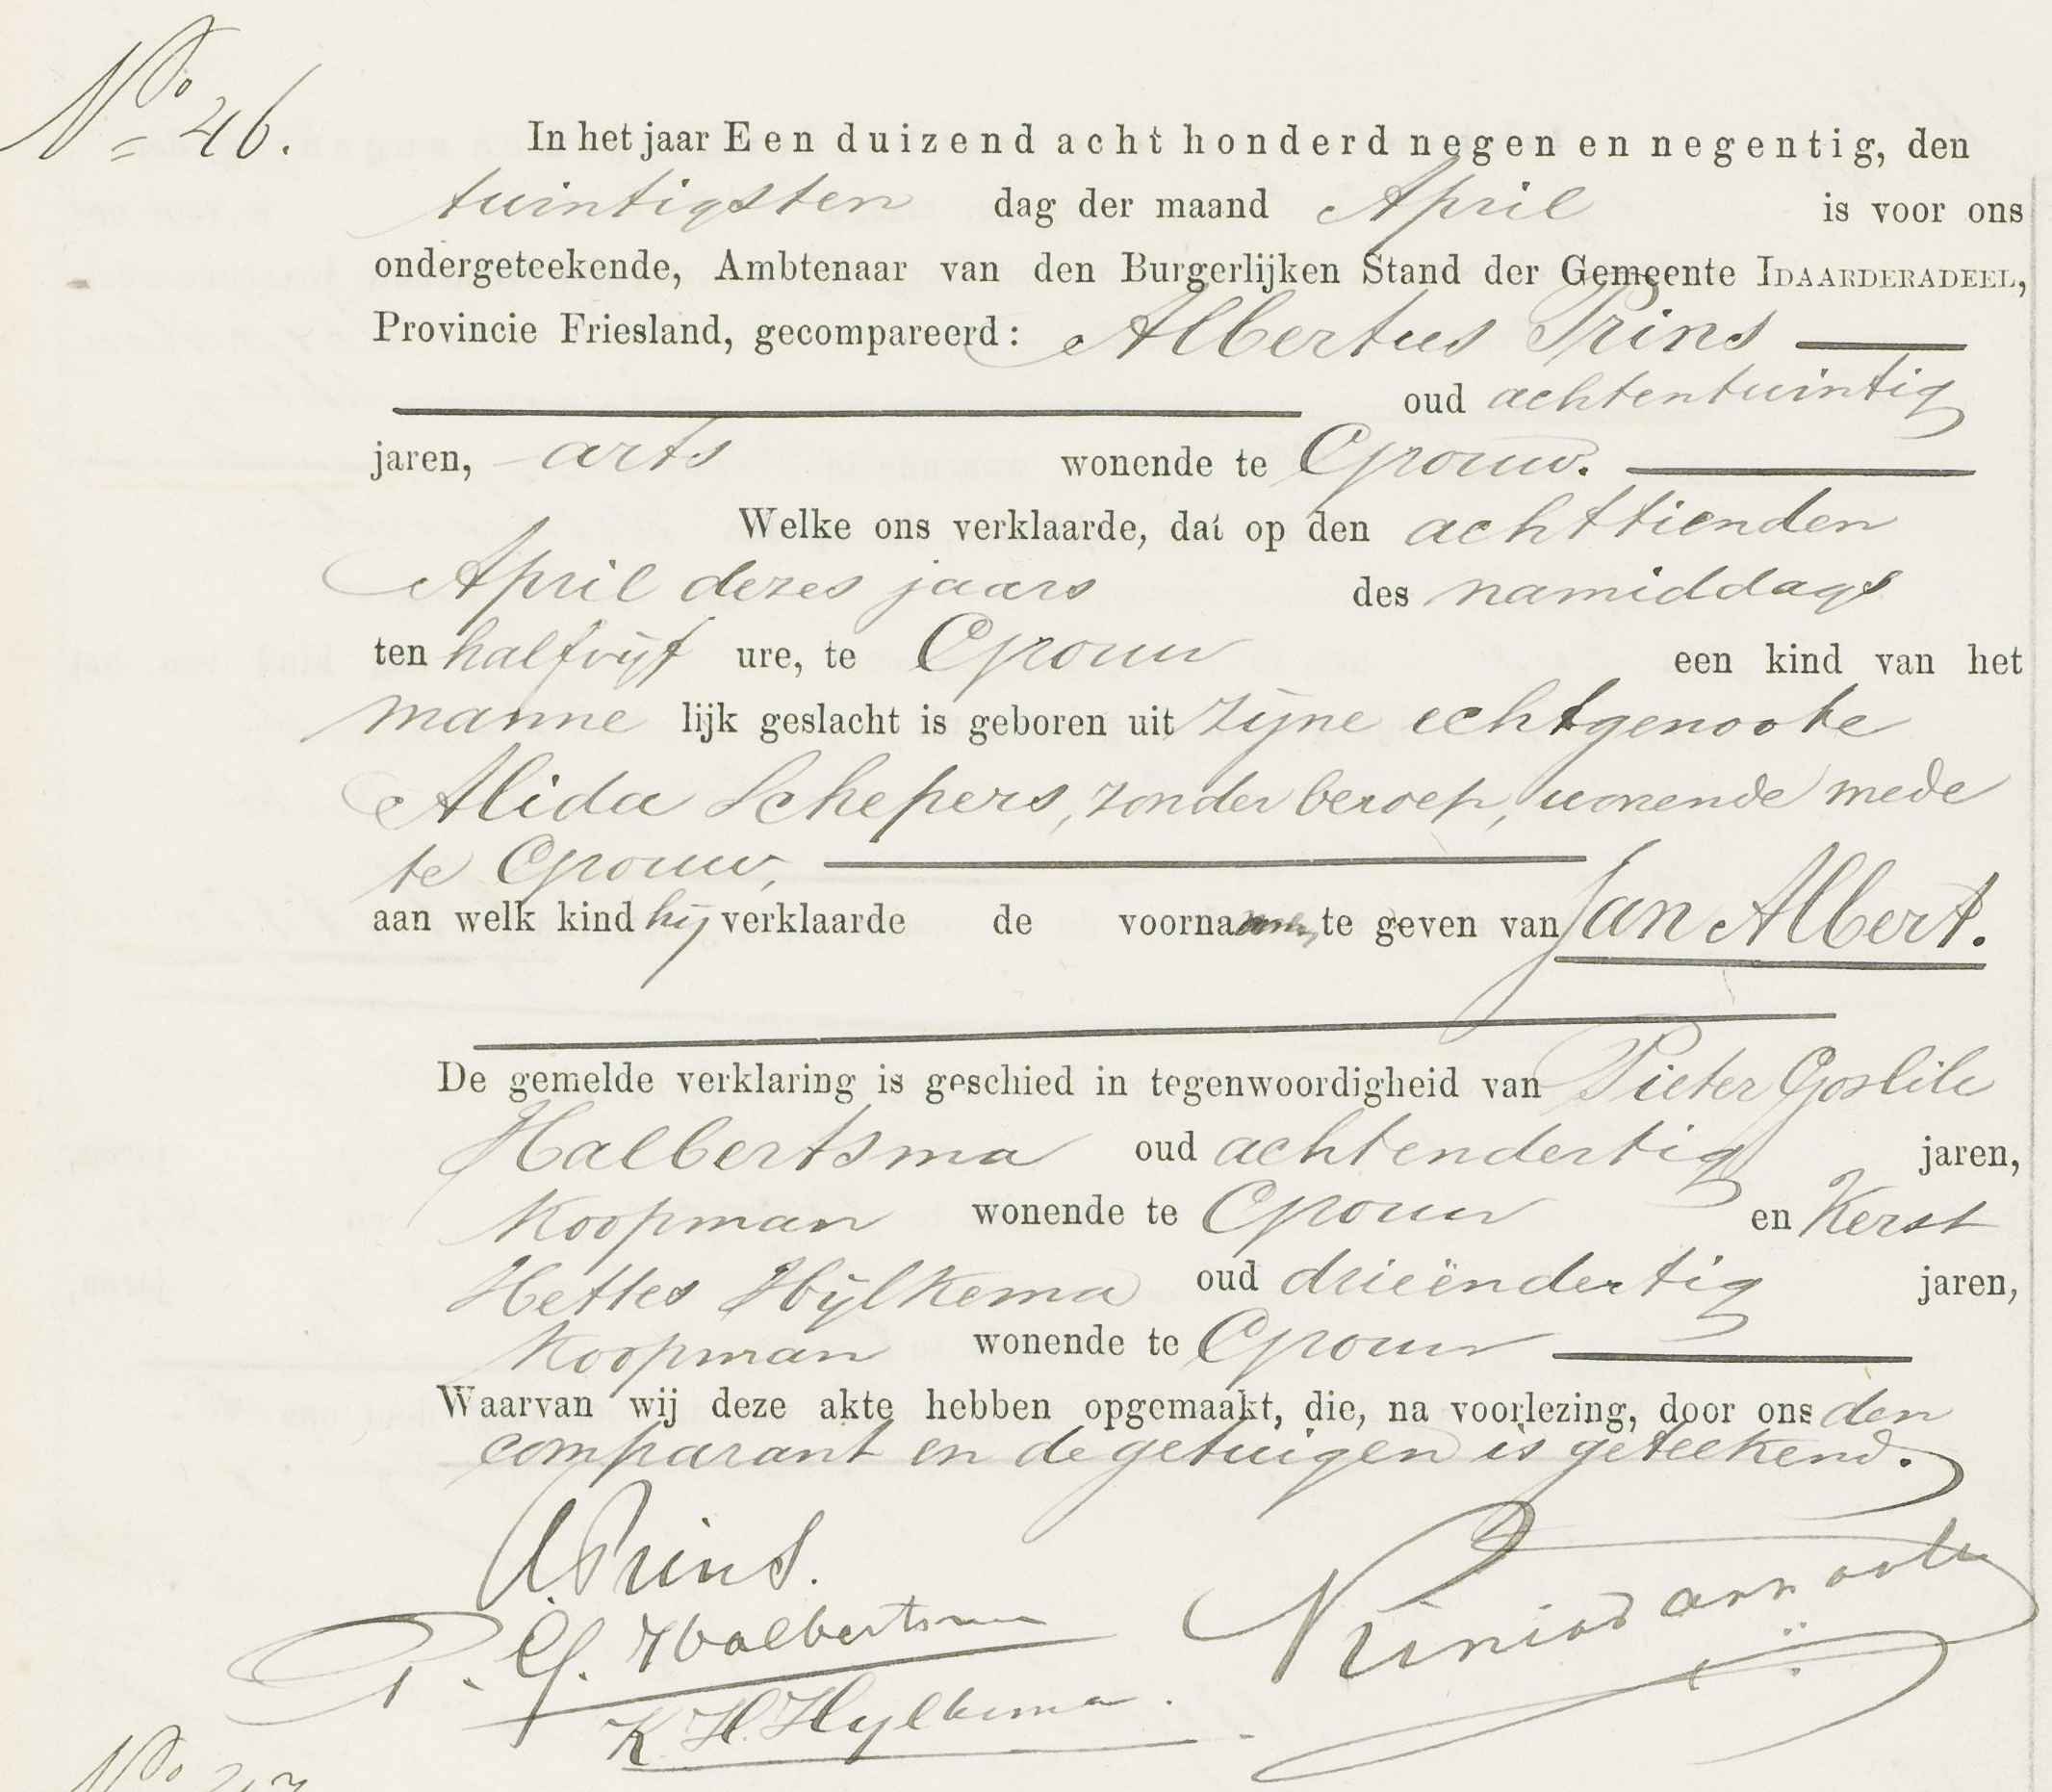 No 46.
In het jaar Een duizend acht honderd negen en negentig, den
twintigsten dag der maand April is voor ons
ondergeteekende, Ambtenaar van den Burgerlijken Stand der Gemeente IDAARDERADEEL,
Provincie Friesland, gecompareerd: Albertus Prins
oud achtentwintig
jaren, arts wonende te Grouw.
Welke ons verklaarde, dat op den achttienden
April dezes jaars des namiddags
ten half vijf ure, te Grouw een kind van het
manne lijk geslacht is geboren uit zijne echtgenoote
Alida Schepers, zonder beroep, wonende mede
te Grouw,
aan welk kind hij verklaarde de voornamen te geven van Jan Albert.
De gemelde verklaring is geschied in tegenwoordigheid van Pieter Goslik
Halbertsma oud achtendertig jaren,
Koopman wonende te Grouw en Kerst
Hettes Hijlkema oud drieëndertig jaren,
Koopman wonende te Grouw
Waarvan wij deze akte hebben opgemaakt, die, na voorlezing, door ons den
comparant en de getuigen is geteekend.
A Prins.
P. G. Halbertsma
K. H. Hylkema.
No 47